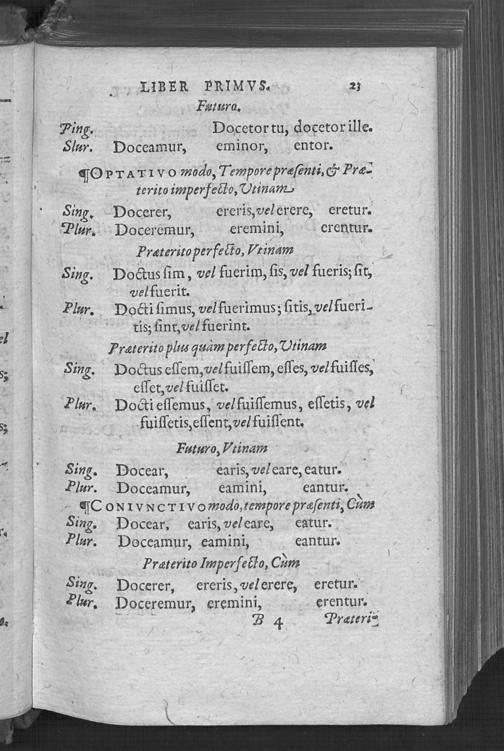 LIBER PRIMVS. 23
Futuro.
Ping. Docetor tu, docetor ille.
Slur. Doceamur, eminor, entor.
¶OPTATIVO modo, Tempore præsenti, & Præ-
terito imperfecto, Vtinam
Sing. Docerer, ereris, vel erere, eretur.
Plur. Doceremur, eremini, erentur.
Præterito perfecto, Vtinam
Sing. Doctus sim, vel fuerim, sis, vel fueris; sit,
vel fuerit.
Plur. Docti simus, vel fuerimus; sitis, vel fueri-
tis; sint, vel fuerint.
Præterito plus quàm perfecto, Vtinam
Sing. Doctus essem, vel fuissem, esses, vel fuisses,
esset, vel fuisset.
Plur. Docti essemus, vel fuissemus, essetis, vel
fuissetis, essent, vel fuissent.
Futuro, Vtinam
Sing. Docear, earis, vel eare, eatur.
Plur. Doceamur, eamini, eantur.
¶CONIVNCTIVO modo, tempore præsenti, Cùm
Sing. Docear, earis, vel eare, eatur.
Plur. Doceamur, eamini, eantur.
Præterito Imperfecto, Cùm
Sing. Docerer, ereris, vel erere, eretur.
Plur. Doceremur, eremini, erentur.
B 4 Præteri-